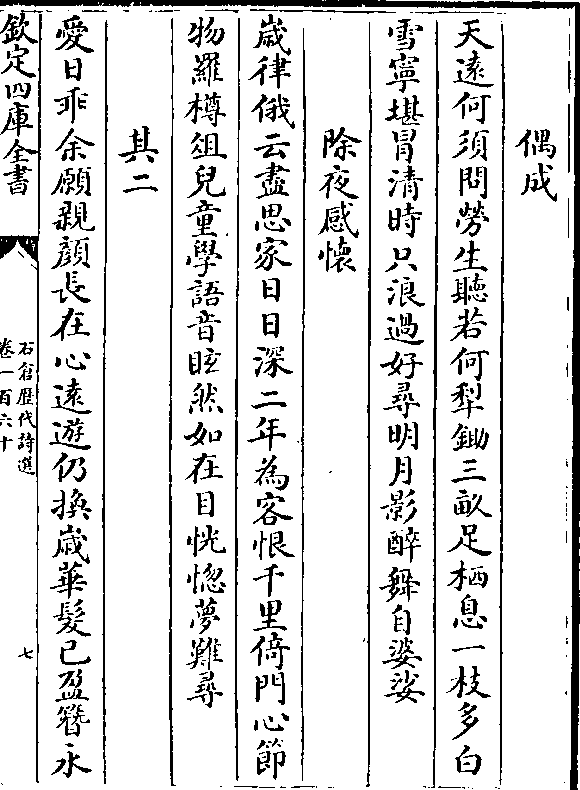 偶成
天遠何須問勞生聽若何犁鋤三畝足栖息一枝多白
雪寧堪冒清時只浪過好尋明月影醉舞自婆娑
除夜感懷
嵗律俄云盡思家日日深二年為客恨千里倚門心節
物羅樽俎兒童學語音眩然如在目恍惚夢難尋
其二
愛日乖余願親顔長在心逺遊仍換嵗華髮已盈簪永
欽定四庫全書
石倉歷代詩選
卷一百六十
七